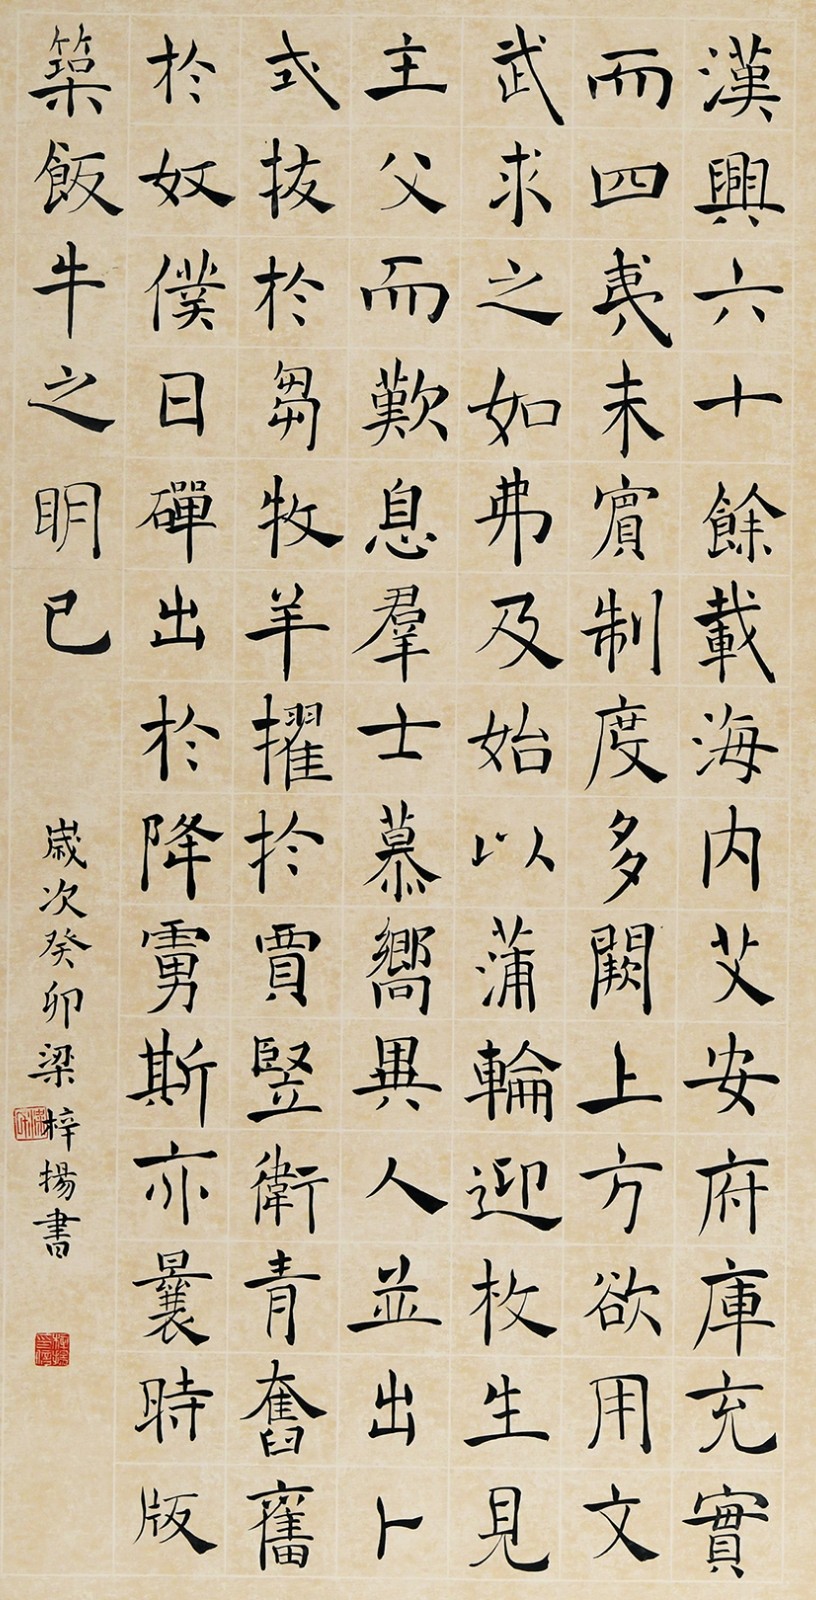 漢興六十餘載海内艾安府庫充實
而四夷未賓制度多闕上方欲用文
武求之如弗及始以蒲輪迎枚生見
主父而歎息羣士慕嚮異人並出卜
式拔於芻牧羊擢於賈豎衛青奮舊
於奴僕日磾出於降虜斯亦曩時版
築飯牛之明已
歲次癸卯梁梓揚書